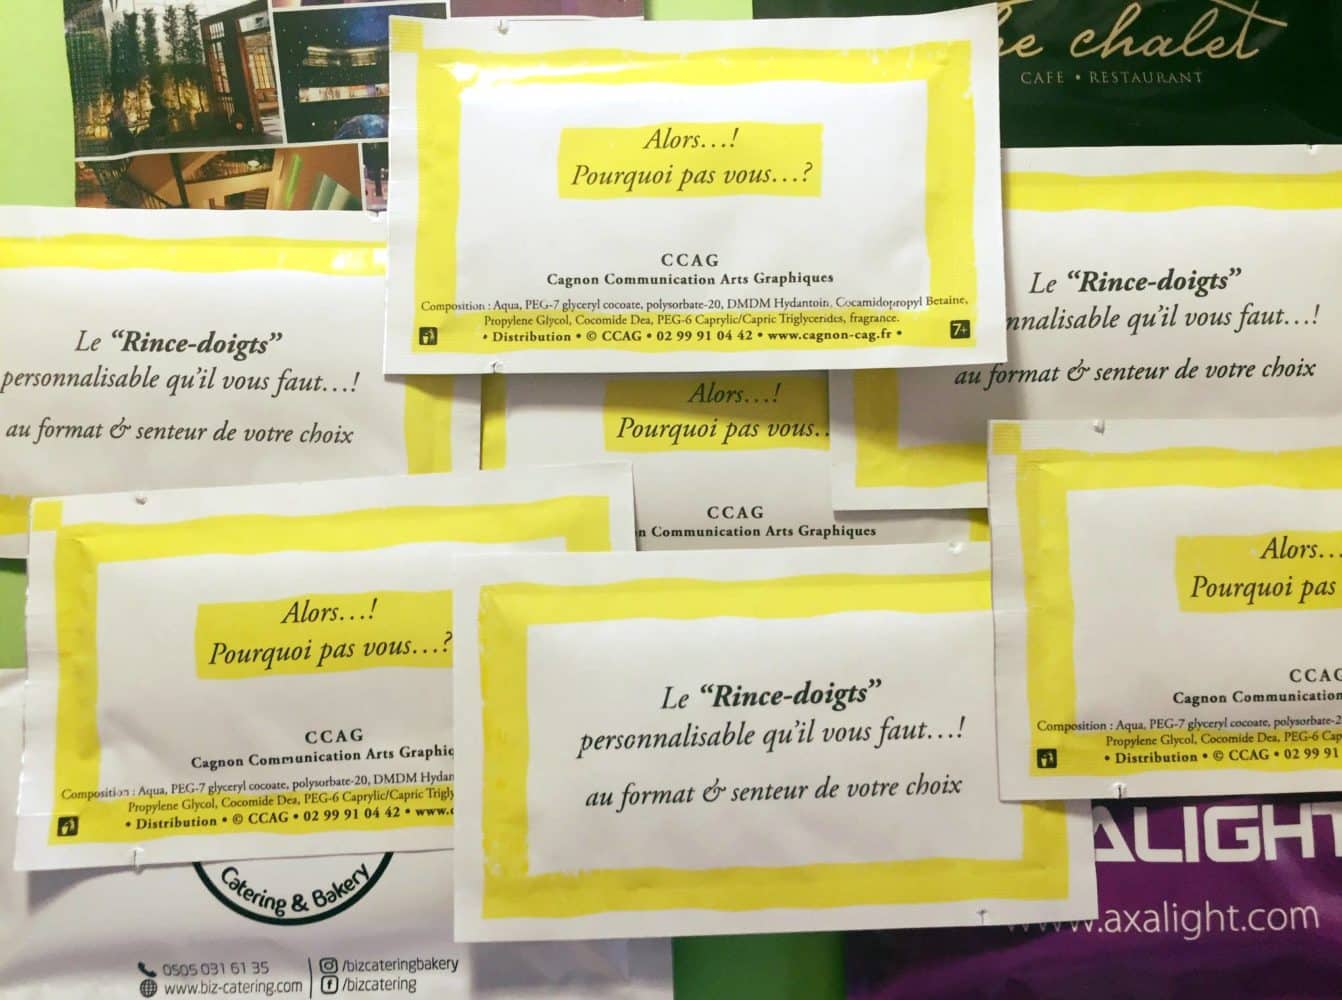 he chalet
CAFE • RESTAURANT
Alors...!
Pourquoi pas vous...?
CCAG
Cagnon Communication Arts Graphiques
Composition : Aqua, PEG-7 glyceryl cocoate, polysorbate-20, DMDM Hydantoin, Cocamidopropyl Betaine,
Propylene Glycol, Cocomide Dea, PEG-6 Caprylic/Capric Triglycerides, fragrance.
• Distribution • © CCAG • 02 99 91 04 42 • www.cagnon-cag.fr •
7+
Le “Rince-doigts”
personnalisable qu'il vous faut...!
au format & senteur de votre choix
Le “Rince-doigts”
nnalisable qu'il vous faut...!
au format & senteur de votre choix
Alors...!
Pourquoi pas vous..
CCAG
n Communication Arts Graphiques
Alors...!
Pourquoi pas vous...?
CCAG
Cagnon Communication Arts Graphiq
Composition : Aqua, PEG-7 glyceryl cocoate, polysorbate-20, DMDM Hydan
Propylene Glycol, Cocomide Dea, PEG-6 Caprylic/Capric Trigly
• Distribution • © CCAG • 02 99 91 04 42 • www.c
Le “Rince-doigts”
personnalisable qu'il vous faut...!
au format & senteur de votre choix
Alors...
Pourquoi pas
CCAG
Cagnon Communication
Composition : Aqua, PEG-7 glyceryl cocoate, polysorbate-2
Propylene Glycol, Cocomide Dea, PEG-6 Cap
• Distribution • © CCAG • 02 99 91
ALIGHT
www.axalight.com
Catering & Bakery
0505 031 61 35
www.biz-catering.com
/bizcateringbakery
/bizcatering